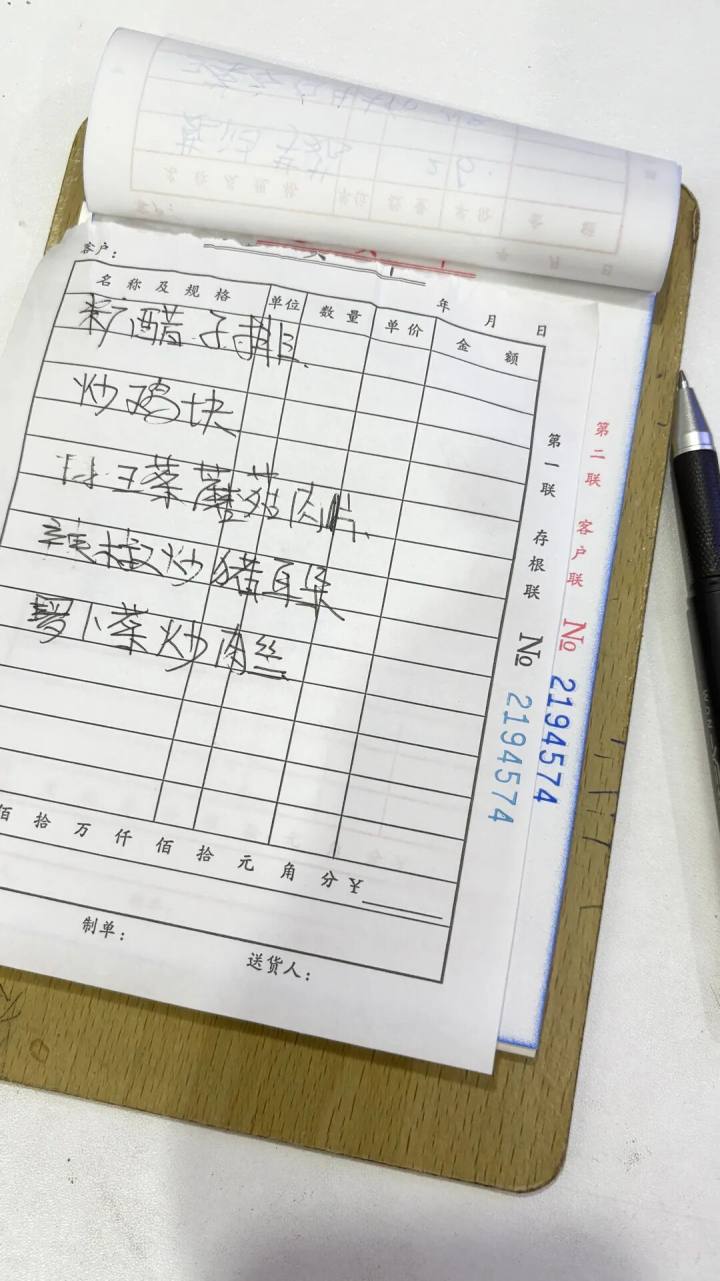 客户：
年 月 日
名称及规格 单位 数量 单价 金额
醋子排
炒鸡块
菜蘑菇肉片
辣椒炒猪耳朵
萝卜菜炒肉丝
佰拾万仟佰拾元角分￥
制单：
送货人：
第一联 存根联 № 2194574
第二联 客户联 № 2194574